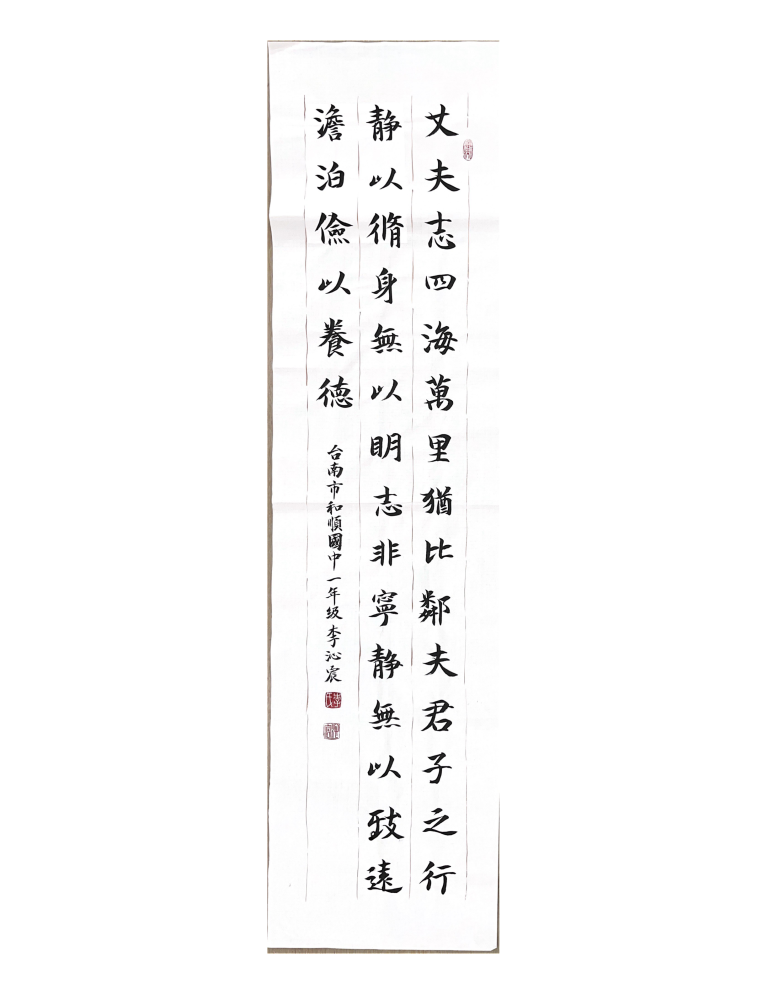 丈夫志四海萬里猶比鄰夫君子之行
静以脩身無以明志非寧静無以致遠
澹泊儉以養德
台南市和順國中一年級李沁宸